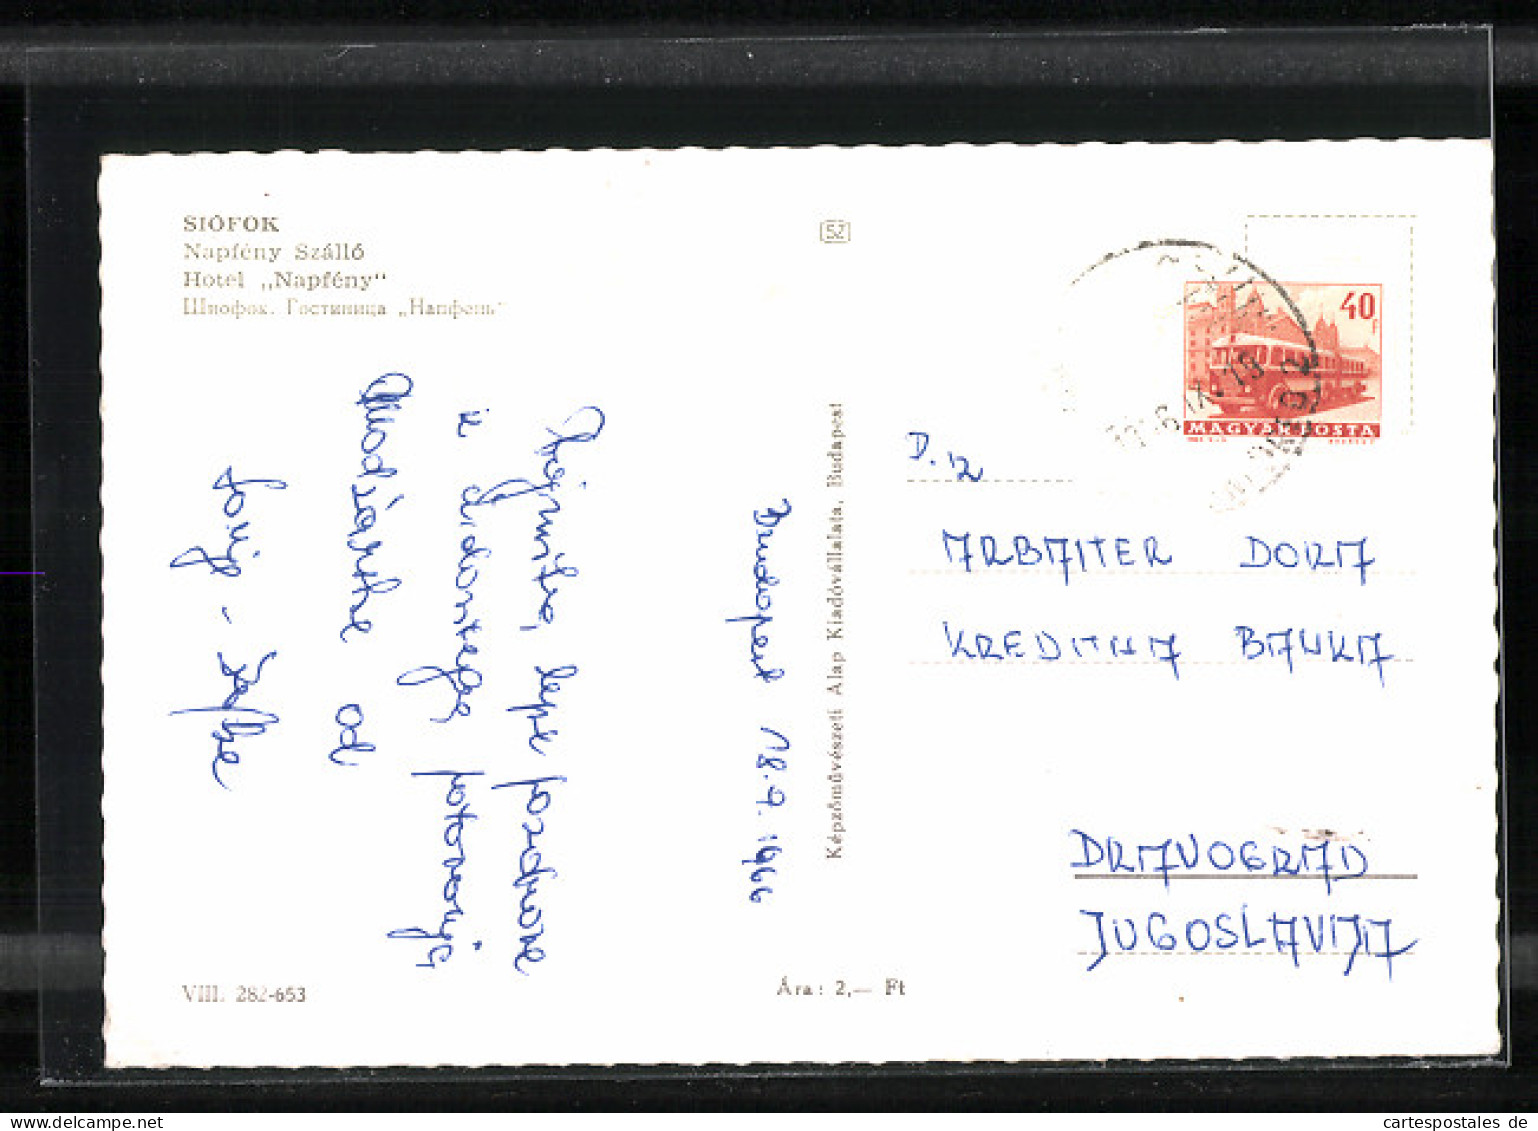 SIÓFOK
Napfény Szálló
Hotel „Napfény"
Шиофок. Гостиница „Напфень"
52
40
F
MAGYAR POSTA
IX. 19
Budapest 18.9.1966
lepe pozdrave
iz
potovanja
Madžarske od
Képzőművészeti Alap Kiadóvállalata, Budapest
D. iz
ARBAITER DORA
KREDITNA BANKA
DRAVOGRAD
JUGOSLAVIJA
VIII. 282-653
Ára: 2,— Ft
cartespostales de